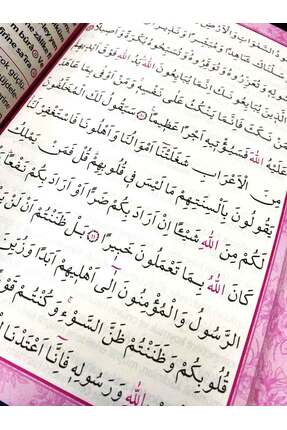 سَلْنَاكَ شَاهِدًا وَمُبَشِّرًا وَنَذِيرًا
وَتُعَزِّرُوهُ وَتُوَقِّرُوهُ وَتُسَبِّحُوهُ بُكْرَةً وَاَصِيلًا
الَّذِينَ يُبَايِعُونَكَ اِنَّمَا يُبَايِعُونَ اللّٰهَ يَدُ اللّٰهِ فَوْقَ اَيْدِيهِمْ
مَنْ نَكَثَ فَاِنَّمَا يَنْكُثُ عَلٰى نَفْسِهٖ وَمَنْ اَوْفٰى بِمَا عَاهَدَ
عَلَيْهُ اللّٰهَ فَسَيُؤْتِيهِ اَجْرًا عَظِيمًا ١٠ سَيَقُولُ لَكَ الْمُخَلَّفُونَ
مِنَ الْاَعْرَابِ شَغَلَتْنَا اَمْوَالُنَا وَاَهْلُونَا فَاسْتَغْفِرْ لَنَا
يَقُولُونَ بِاَلْسِنَتِهِمْ مَا لَيْسَ فِي قُلُوبِهِمْ قُلْ فَمَنْ يَمْلِكُ
لَكُمْ مِنَ اللّٰهِ شَيْئًا اِنْ اَرَادَ بِكُمْ ضَرًّا اَوْ اَرَادَ بِكُمْ نَفْعًا
كَانَ اللّٰهُ بِمَا تَعْمَلُونَ خَبِيرًا ١١ بَلْ ظَنَنْتُمْ اَنْ لَنْ
الرَّسُولُ وَالْمُؤْمِنُونَ اِلٰٓى اَهْلِيهِمْ اَبَدًا وَزُيِّنَ
قُلُوبِكُمْ وَظَنَنْتُمْ ظَنَّ السَّوْءِ وَكُنْتُمْ قَوْ
اللّٰهِ وَرَسُولِهٖ فَاِنَّٓا اَعْتَدْنَا